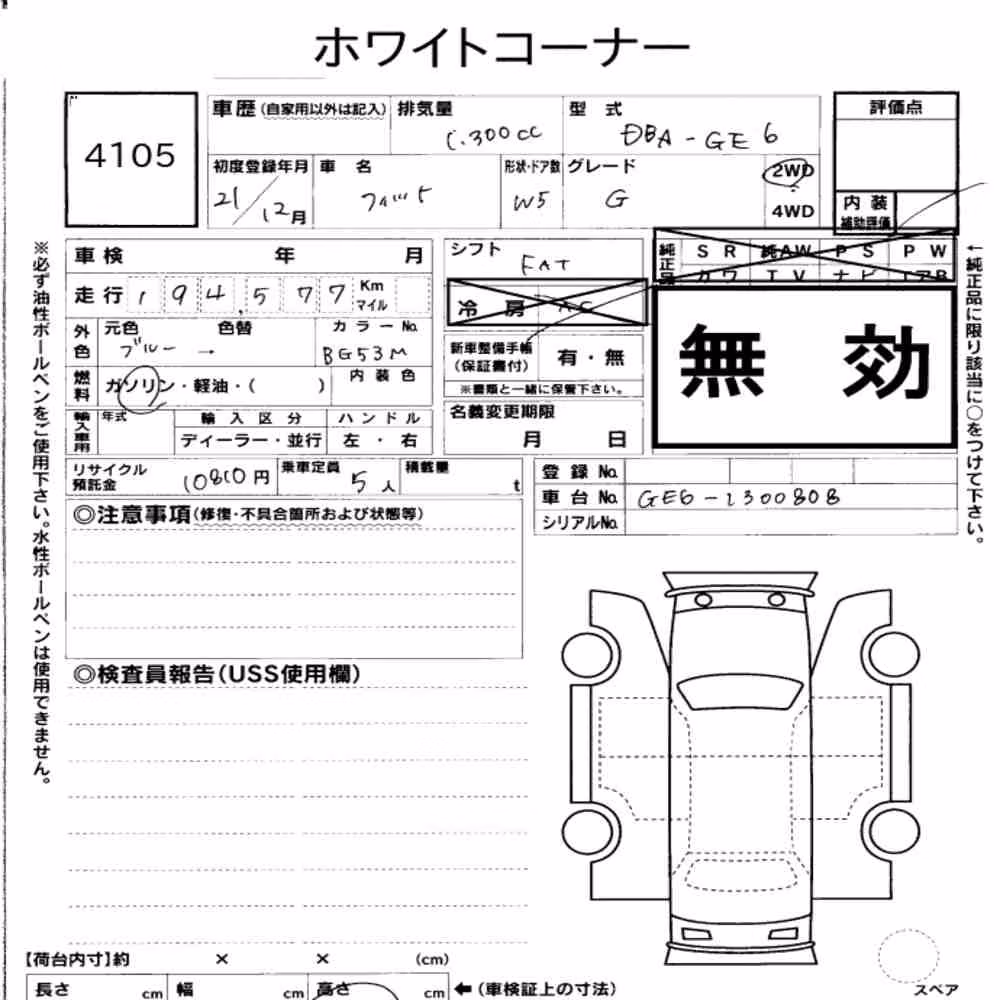 ホワイトコーナー
4105
車歴(自家用以外は記入) 排気量 型式 評価点
1.300cc DBA-GE6
初度登録年月 車名 形状・ドア数 グレード 2WD
21/12月 フィット W5 G 4WD
内装
補助評価
車検 年 月
シフト FAT
純正品 SR 純AW PS PW
カワ TV ナビ エアB
走行 194,577 Km
マイル
冷房 AC
外色 元色 色替 カラーNo.
ブルー → BG53M
新車整備手帳
(保証書付) 有・無
※書類と一緒に保管下さい。
無効
燃料 ガソリン・軽油・( ) 内装色
輸入車用 年式 輸入区分 ハンドル
ディーラー・並行 左・右
名義変更期限
月 日
リサイクル
預託金 10810円 乗車定員 5人 積載量 t
登録No.
車台No. GE6-1300808
シリアルNo.
◎注意事項(修復・不具合箇所および状態等)
◎検査員報告(USS使用欄)
※必ず油性ボールペンをご使用下さい。水性ボールペンは使用できません。
←純正品に限り該当に○をつけて下さい。
【荷台内寸】約 × × (cm)
長さ cm 幅 cm 高さ cm ←(車検証上の寸法)
スペア